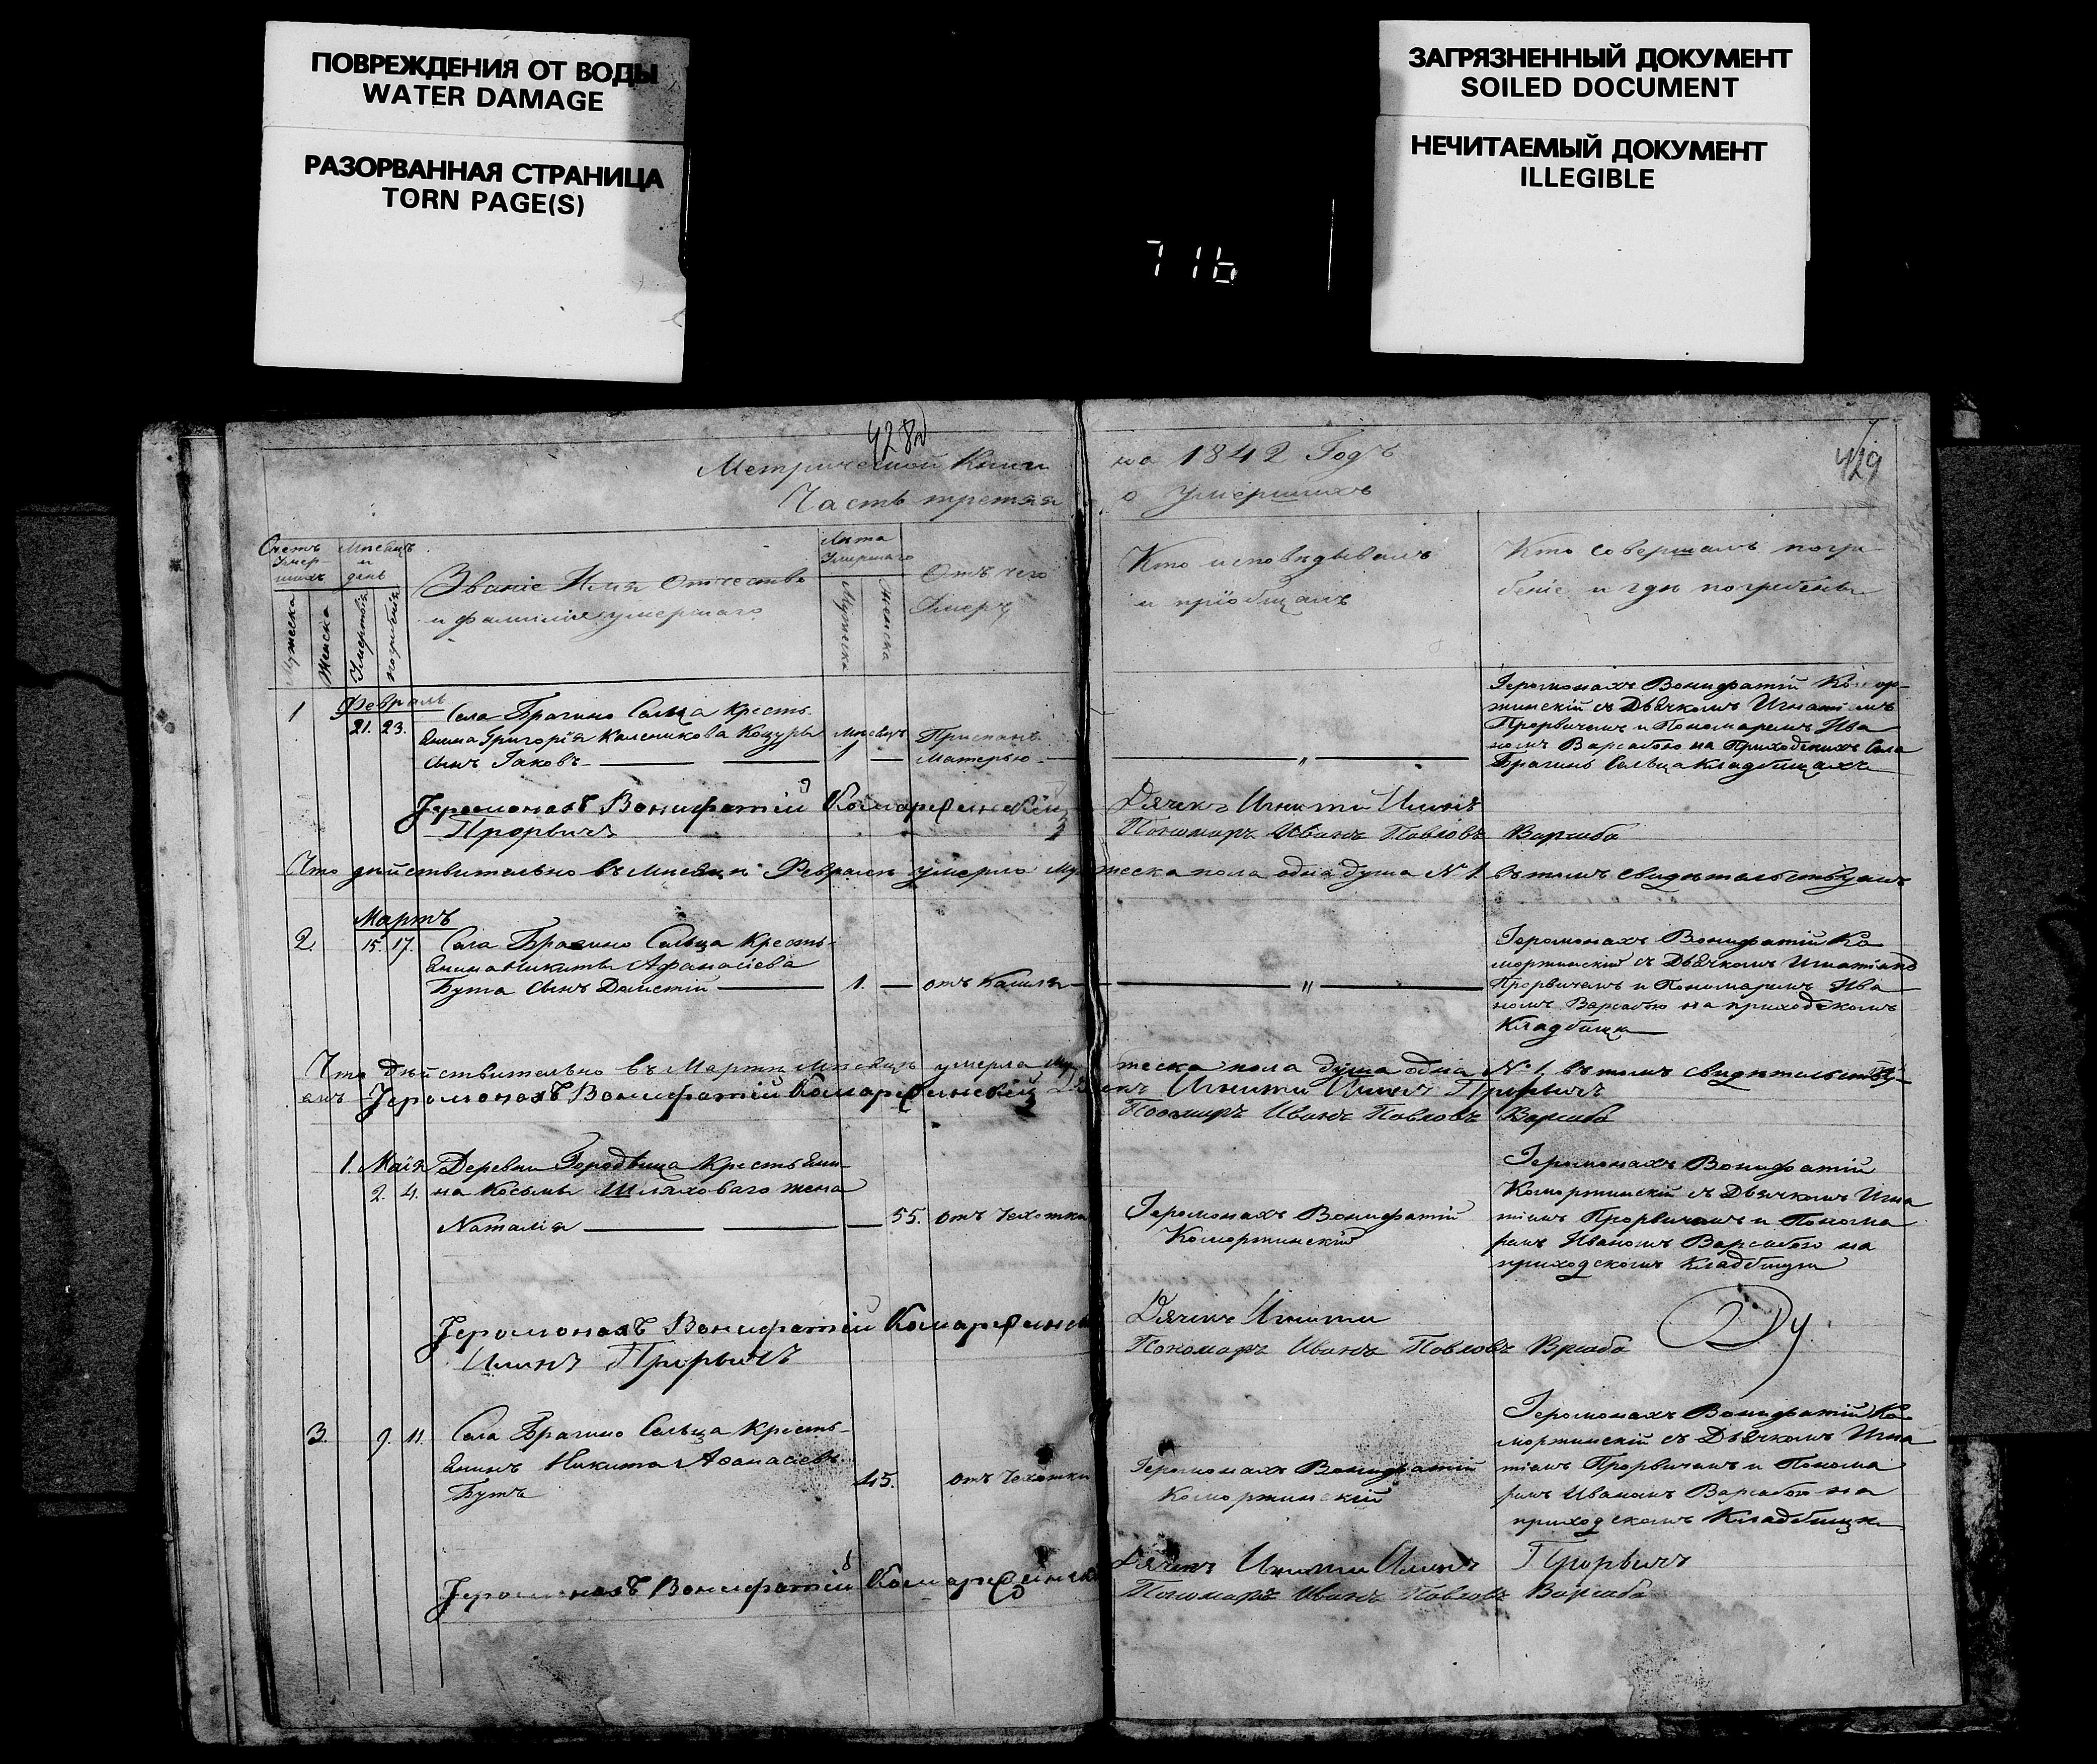 ПОВРЕЖДЕНИЯ ОТ ВОДЫ
WATER DAMAGE
РАЗОРВАННАЯ СТРАНИЦА
TORN PAGE(S)
ЗАГРЯЗНЕННЫЙ ДОКУМЕНТ
SOILED DOCUMENT
НЕЧИТАЕМЫЙ ДОКУМЕНТ
ILLEGIBLE
716
428
429
Метрической Книги на 1842 Годъ
Часть третяя о умершихъ
Счетъ умер-шихъ
Мужеска
Женска
Мѣсяцъ и день
Умертвія
погребенія
Званіе Имя отчество
и фамилія умершаго
Лѣта Умершаго
Мужеска
Женска
Отъ чего
Умеръ
Кто исповѣдывалъ
и пріобщалъ
Кто совершалъ погре
беніе и гдѣ погребены
1
Февраль
21. 23.
Села Брагино Сельца кресть-
янина Григорія Каленикова Кощуры
сынъ Іаковъ
Мѣсяцъ
1
Приспанъ
Матерью
Іеромонахъ Вонифатій
съ Дьячкомъ Игнатіемъ
и Пономаремъ Ива
номъ Варсабою на Приходскихъ Села
Брагинъ Сельца кладбищахъ
Іеромонахъ Вонифатій
Дячекъ Игнати Илинъ
Пономарь Иванъ Павловъ Варсаба
Что дѣйствительно въ Мѣсяцѣ Февралѣ умерло Мужеска пола одна душа № 1 въ томъ свидѣтельствуемъ
2
Мартъ
15. 17.
Села Брагино Сельца Кресть-
янина Никиты Афанасіева
Бута сынъ
1.
отъ Кашля
Іеромонахъ Вонифатій
съ Дьячкомъ
и Пономаремъ Ива
номъ Варсабою на приходскомъ
Кладбищѣ
Что Дѣйствительно въ Мартѣ Мѣсяцѣ умерла Мужеска пола душа одна № 1 въ томъ свидѣтельству-
емъ Іеромонахъ Вонифатій
Пономарь Иванъ Павловъ Варсаба
1.
Маія
2. 4.
Деревни Крестьяни-
на Косьмы Шляховаго жена
Наталія
55.
отъ Чехотки
Іеромонахъ Вонифатій
Іеромонахъ Вонифатій
съ Дьячкомъ Игна
тіемъ и Понома
ремъ Иваномъ Варсабою на
приходскомъ Кладбищѣ
Іеромонахъ Вонифатій
Дячекъ Игнати
Илинъ
Пономарь Иванъ Павловъ
3.
9. 11.
Села Брагино Сельца Кресть-
янинъ Никита Афанасіевъ
Бутъ
45.
отъ Чехотки
Іеромонахъ Вонифатій
Іеромонахъ Вонифатій
съ Дьячкомъ Игна
тіемъ и Понома
ремъ Иваномъ Варсабою на
приходскомъ Кладбищѣ
Іеромонахъ Вонифатій
Дячекъ Игнати Илинъ
Пономарь Иванъ Павловъ Варсаба